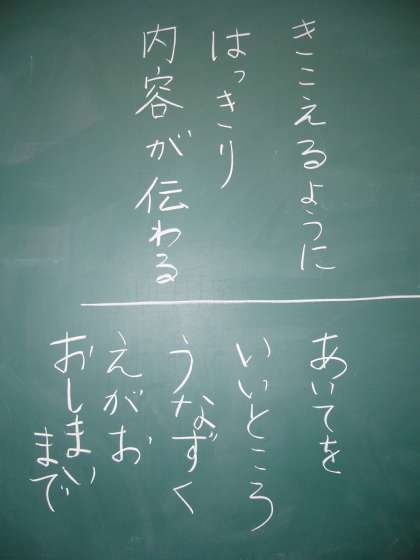 きこえるように
はっきり
内容が伝わる
あいてを
いいところ
うなずく
えがお
おしまい
まで